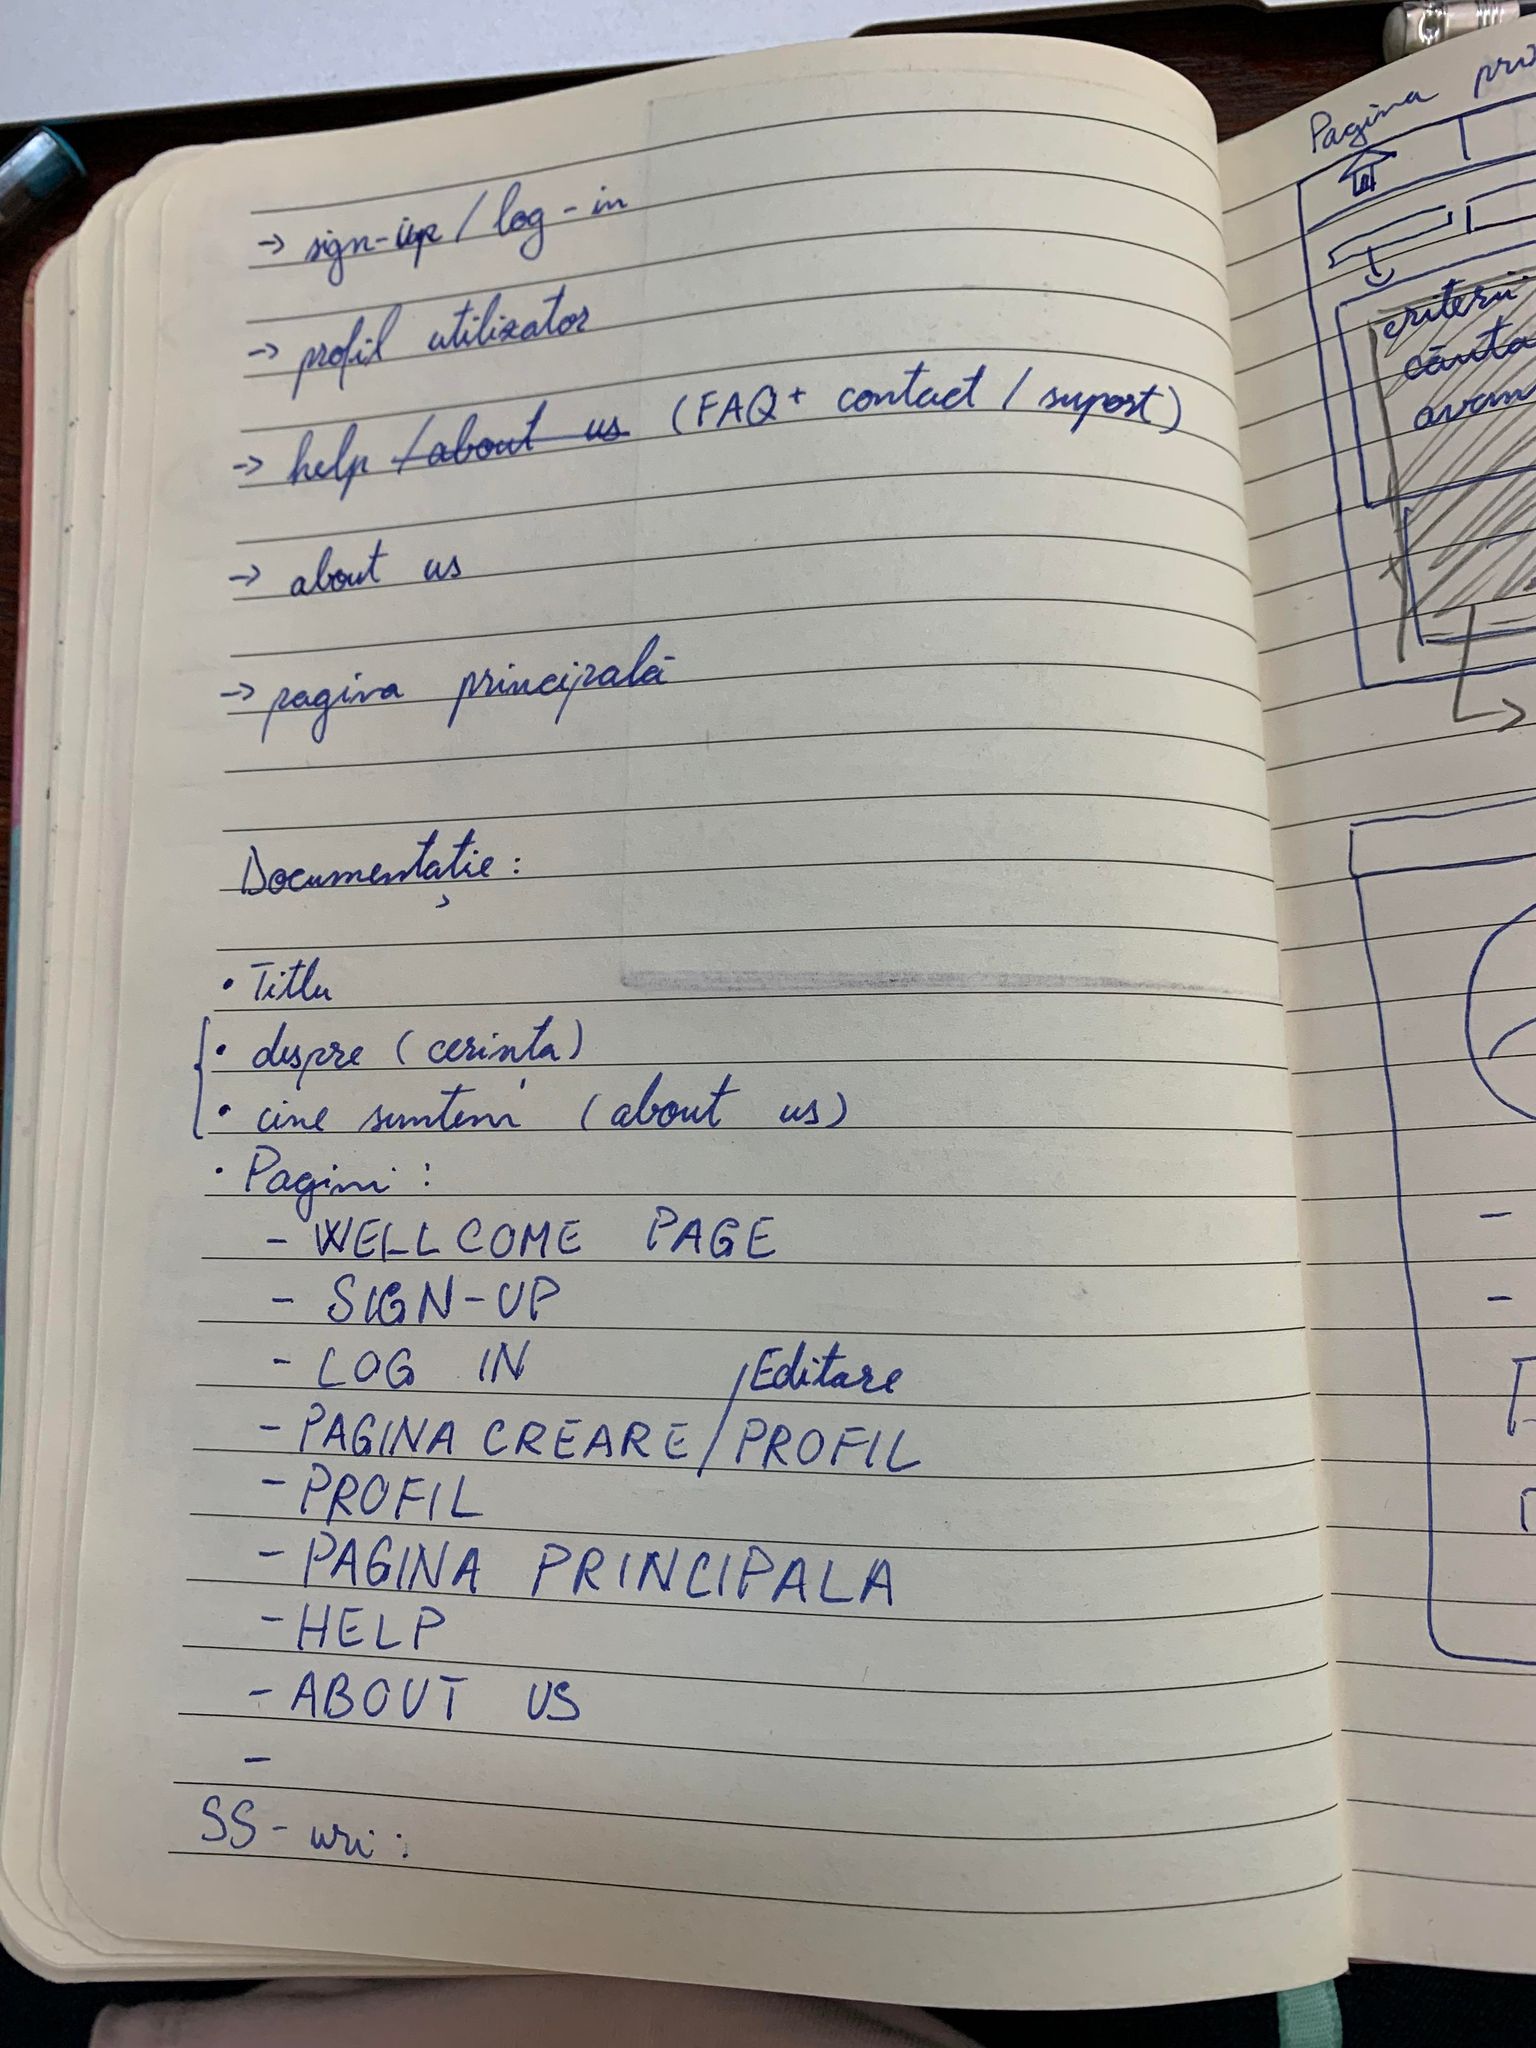 → sign-up / log-in
→ profil utilizator
→ help /about us (FAQ + contact / suport)
→ about us
→ pagina principală
Documentație :
• Titlu
• despre (cerința)
• cine suntem (about us)
• Pagini :
- WELLCOME PAGE
- SIGN-UP
- LOG IN
- PAGINA CREARE / Editare PROFIL
- PROFIL
- PAGINA PRINCIPALA
- HELP
- ABOUT US
-
SS-uri :
Pagina
criterii